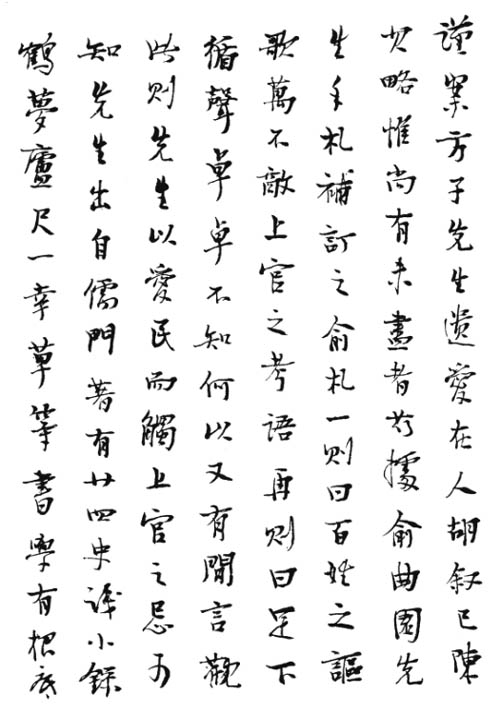 謹案方子先生遺愛在人胡叙已陳
其略惟尚有未盡者茲據俞曲園先
生手札補訂之俞札一則曰百姓之謳
歌萬不敵上官之考語再則曰足下
循聲卓卓不知何以又有閒言觀
此則先生以愛民而觸上官之忌可
知先生出自儒門著有廿四史識小錄
鶴夢廬尺一幸草等書學有根底